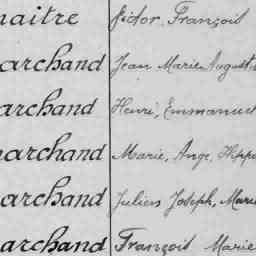 naitre Victor, François
archand Jean Marie August
archand Henri, Emmanuel
marchand Marie, Ange, Hippo
archand Julien Joseph, Marie
archand François Marie